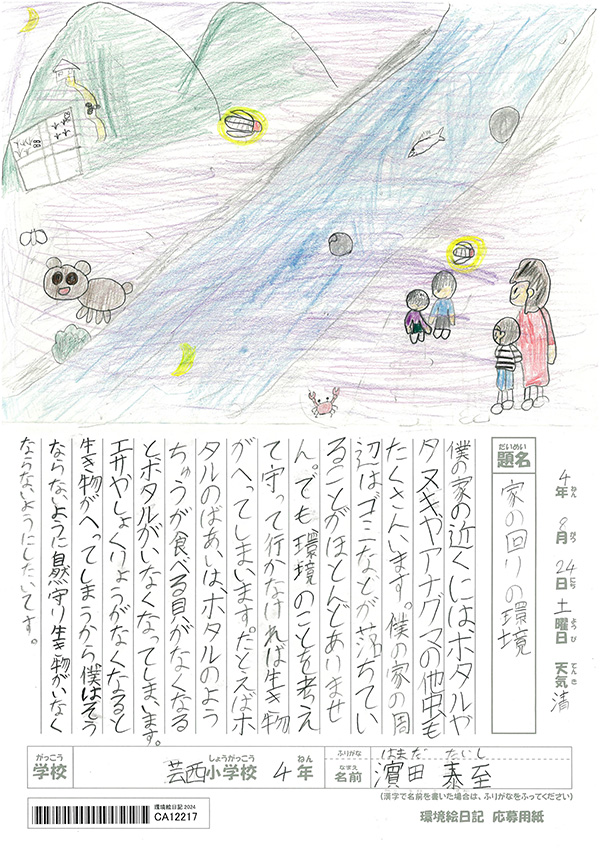 4年 8月 24日 土曜日 天気 清
ねん がつ にち ようび てんき
だいめい
題名
家の回りの環境
僕の家の近くにはホタルや
タヌキやアナグマの他虫も
たくさんいます。僕の家の周
辺はゴミなどが落ちてい
ることがほとんどありませ
ん。でも環境のことを考え
て守って行かなければ生き物
がへってしまいます。だとえばホ
タルのばあいは、ホタルのよう
ちゅうが食べる貝がなくなる
とホタルがいなくなってしまいます。
エサやしょくりょうがなくなると
生き物がへってしまうから僕はそう
ならないように自然守り生き物がいなく
ならないようにしたいです。
がっこう しょうがっこう ねん
学校 芸西小学校 4年
ふりがな はまだ たいし
なまえ
名前 濵田 泰至
(漢字で名前を書いた場合は、ふりがなをふってください)
環境絵日記 2024
CA12217
環境絵日記 応募用紙